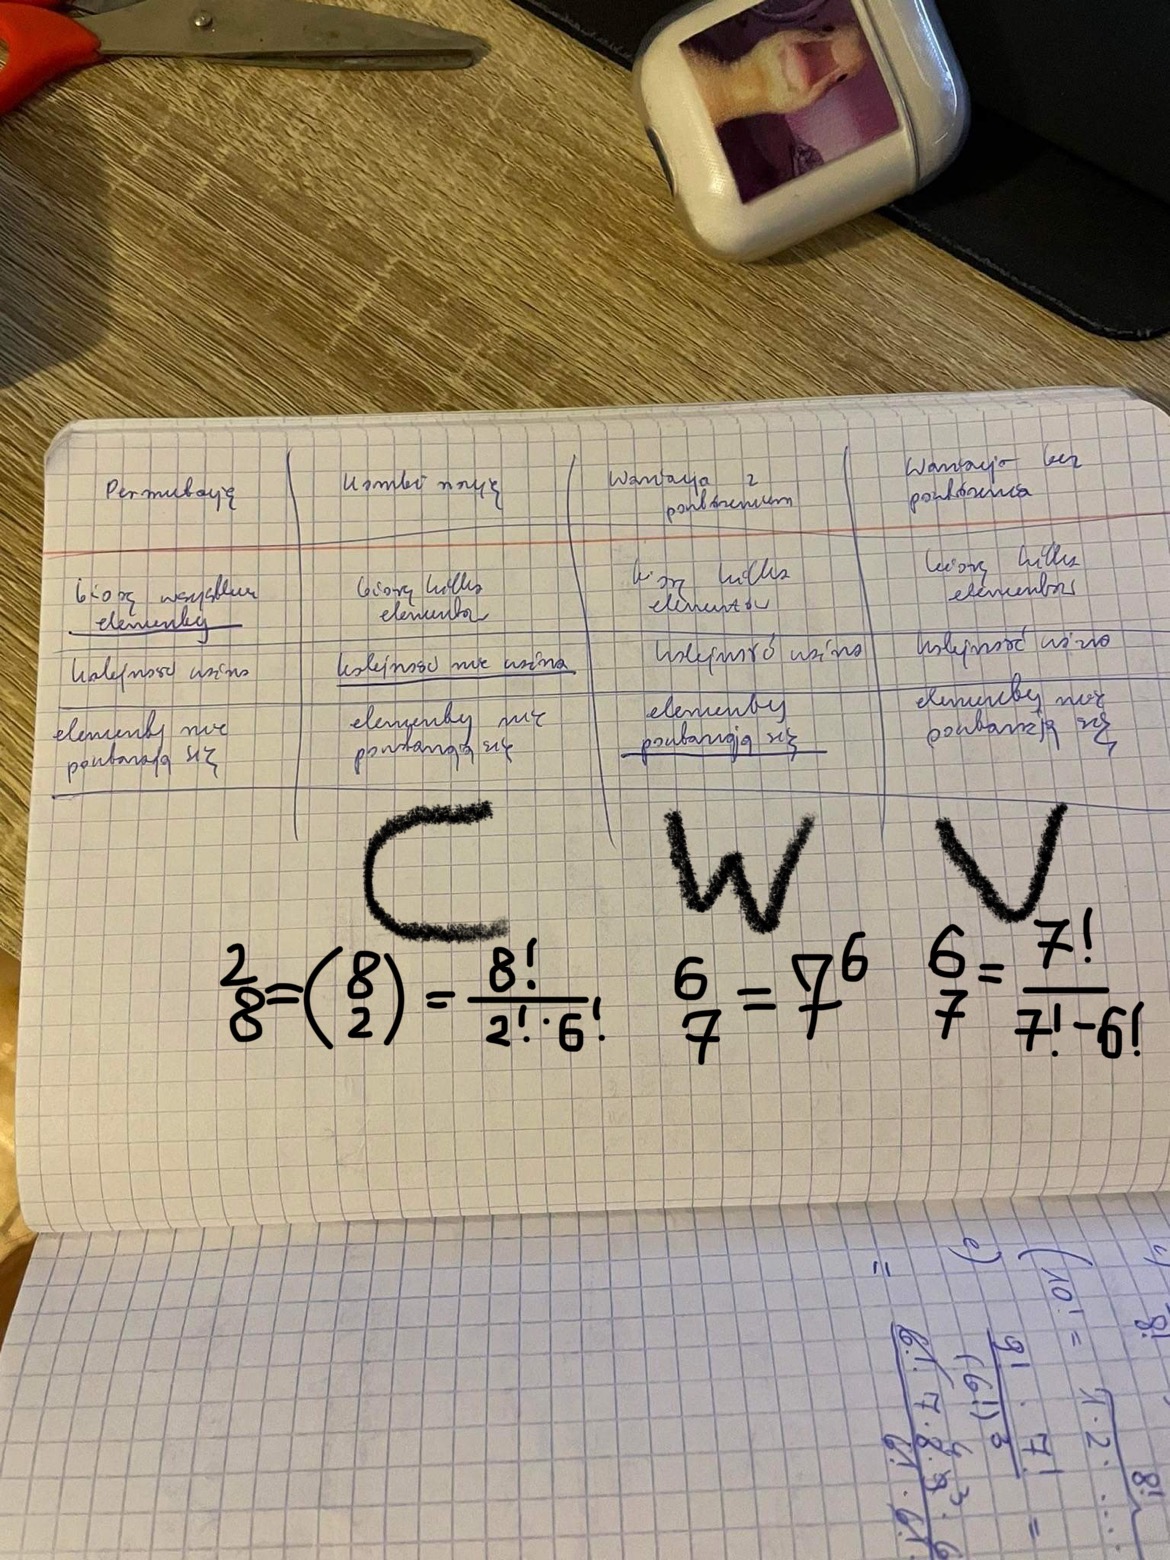 Permutacje
Kombinacje
Wariacja z
powtórzeniem
Wariacja bez
powtórzenia
biorę wszystkie
elementy
biorę kilka
elementów
biorę kilka
elementów
biorę kilka
elementów
kolejność ważna
kolejność nie ważna
kolejność ważna
kolejność ważna
elementy nie
powtarzają się
elementy nie
powtarzają się
elementy
powtarzają się
elementy nie
powtarzają się
C
W
V
2/8 = (8 2) = 8! / 2! · 6!
6/7 = 7^6
6/7 = 7! / 7! - 6!
e) 9! · 7! / (6!)³ =
10! =
8!